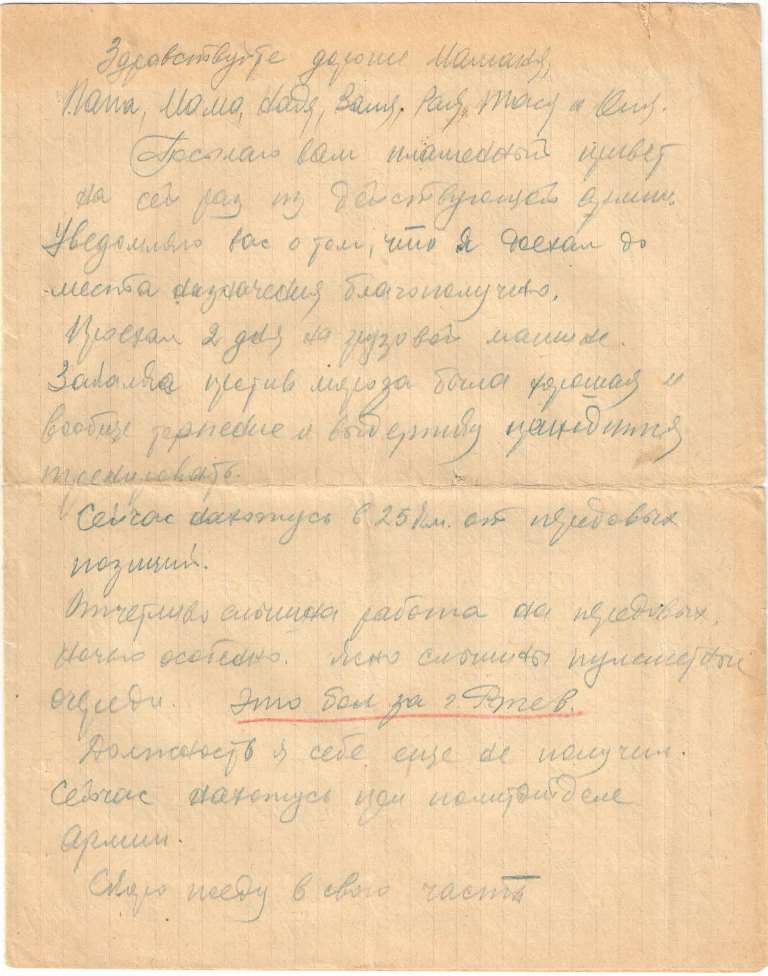 Здравствуйте дорогие Маманя,
Папа, Мама, Надя, Валя, Рая, Тося и Оля.
Посылаю вам пламенный привет
на сей раз из действующей армии.
Уведомляю вас о том, что я доехал до
места назначения благополучно.
Проехал 2 дня на грузовой машине.
Закалка против мороза была хорошая и
вообще терпение и выдержку
тренировать.
Сейчас нахожусь в 25 км. от передовых
позиций.
Отчетливо слышна работа на передовых,
ночью особенно. Ясно слышны пулеметные
очереди. Это бои за г. Ржев.
Должность я себе еще не получил.
Сейчас нахожусь при политотделе
армии.
Скоро поеду в свою часть